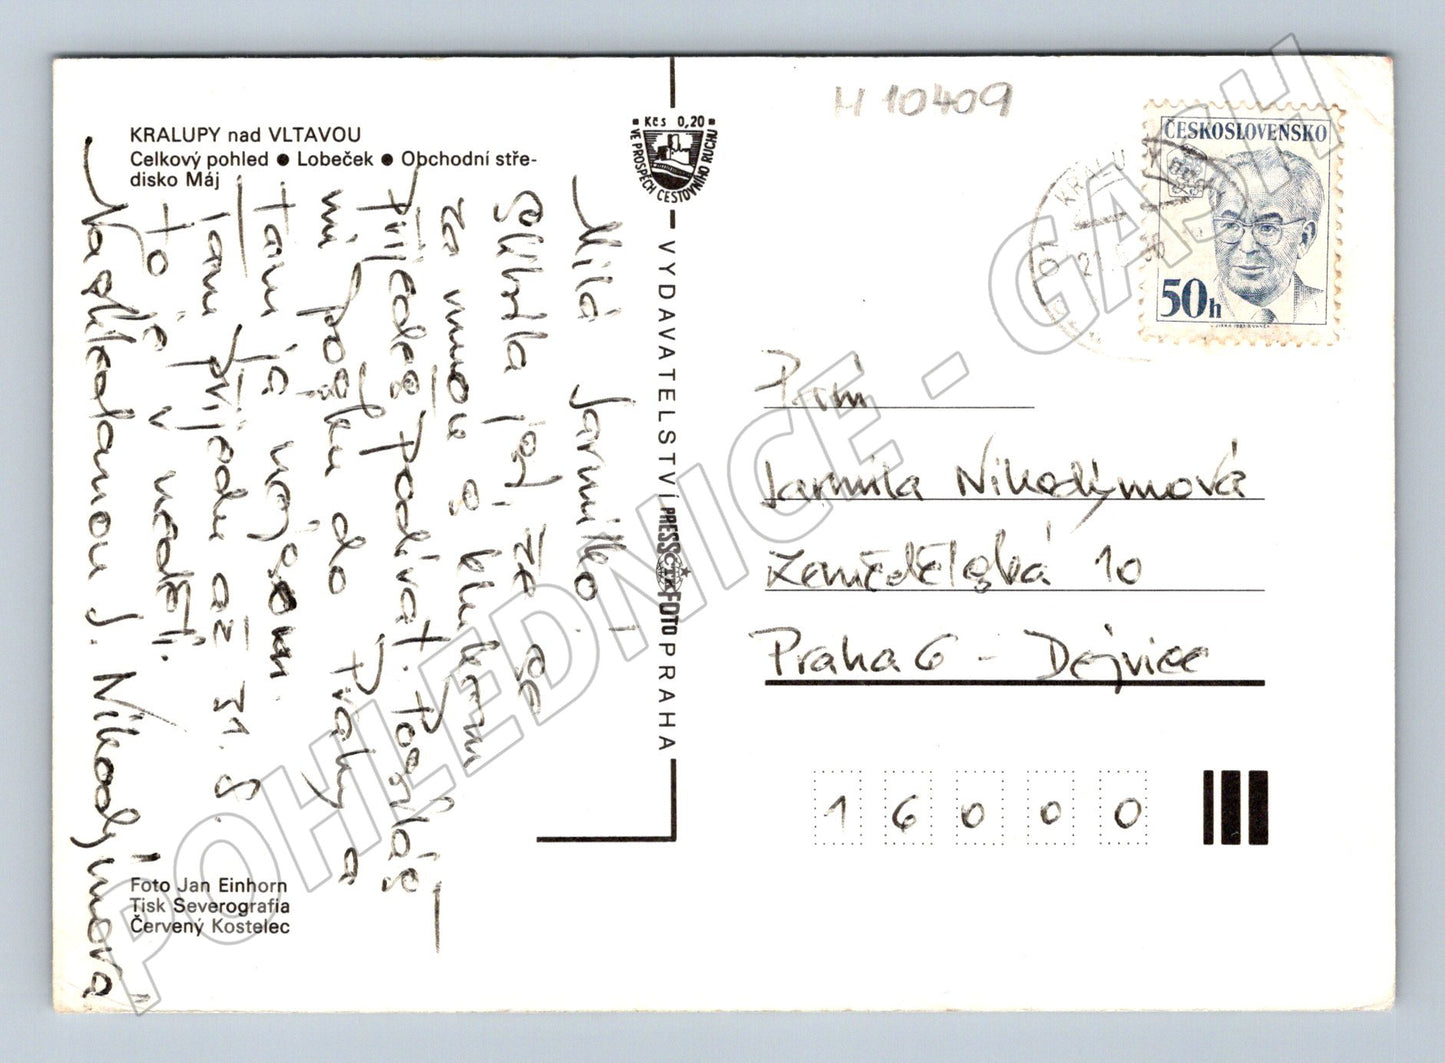 H 10409
KRALUPY nad VLTAVOU
Celkový pohled ● Lobeček ● Obchodní stře-
disko Máj
Kčs 0,20
VE PROSPĚCH CESTOVNÍHO RUCHU
ČESKOSLOVENSKO
50h
Milá Jarmilko!
Slíbila jsi, že se
za mnou s klukem
přijedeš podívat.
mi do Prahy a
tam já nejsem.
Jsem přijedu až 31. 8.
to je v neděli.
Nashledanou J. Nikodýmová
VYDAVATELSTVÍ PRESSFOTO PRAHA
ČTK
Paní
Jarmila Nikodýmová
Zemědělská 10
Praha 6 - Dejvice
16000
Foto Jan Einhorn
Tisk Severografia
Červený Kostelec
POHLEDNICE - GASH